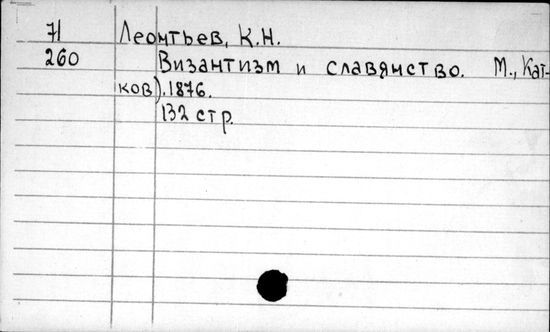 71 Леонтьев, К.Н.
260 Византизм и славянство. М., Кат-
ков). 1876.
132 стр.